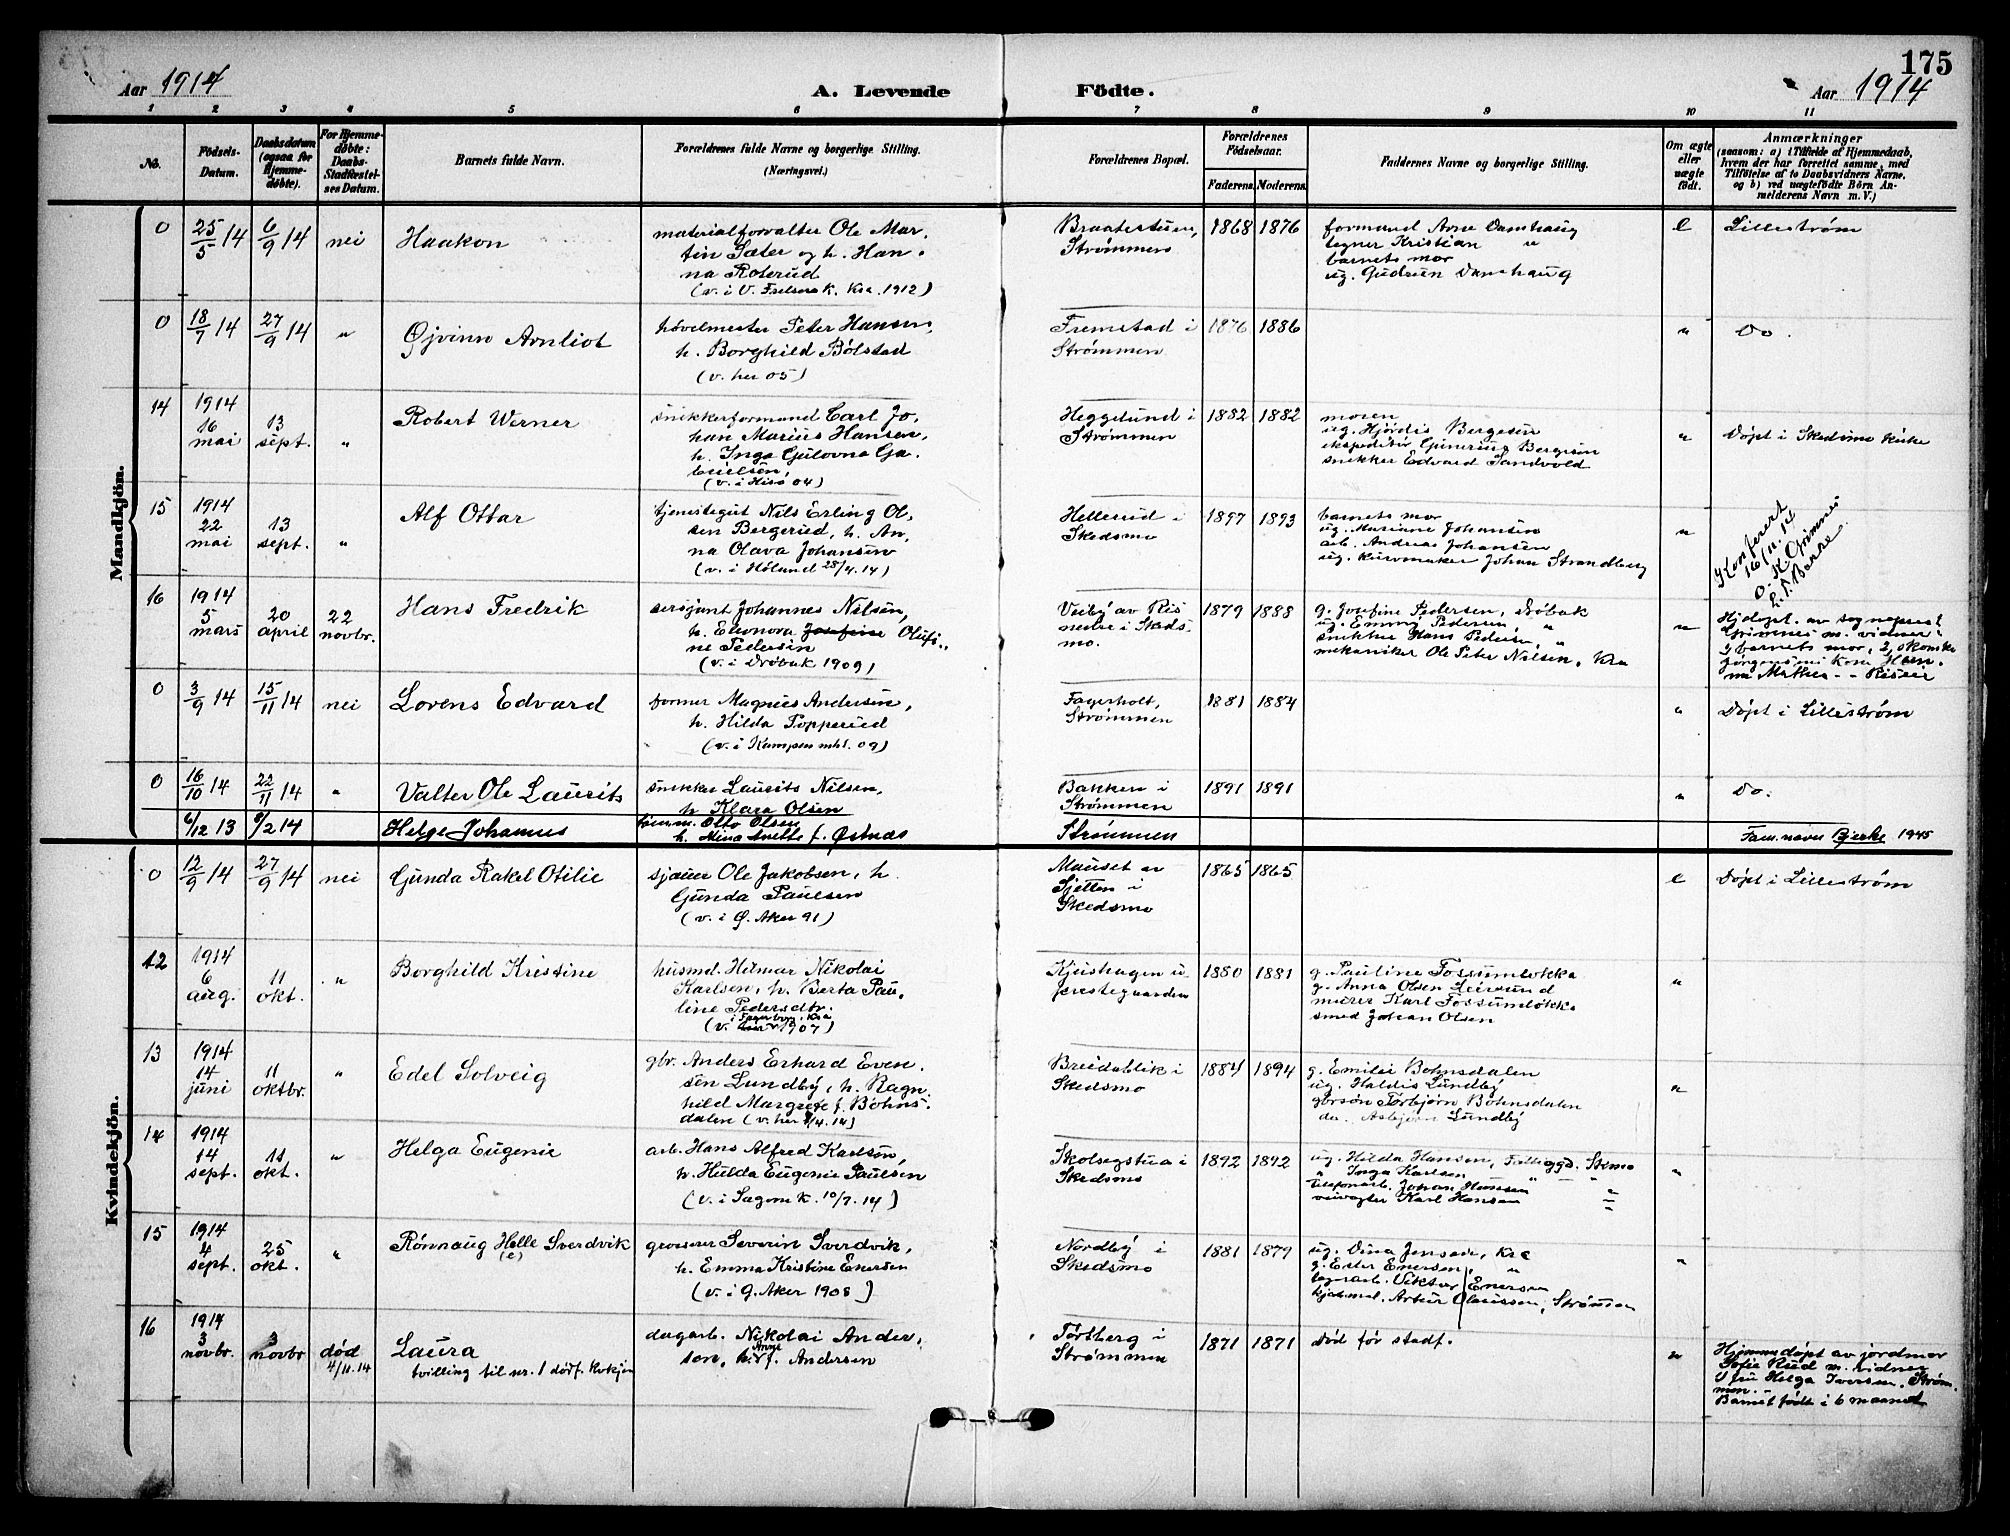 175
Aar 1914
A. Levende Födte.
Aar 1914
1 2 3 4 5 6 7 8 9 10 11
No.
Födsels-Datum.
Daabsdatum (ogsaa for Hjemme-döbte).
For Hjemme-döbte: Daabs-Stadfæstel-ses Datum.
Barnets fulde Navn.
Forældrenes fulde Navne og borgerlige Stilling.
(Næringsvei.)
Forældrenes Bopæl.
Forældrenes Födselsaar.
Faderens. Moderens.
Faddernes Navne og borgerlige Stilling.
Om ægte eller uægte födt.
Anmærkninger
(saasom: a) i Tilfælde af Hjemmedaab,
hvem der har forrettet samme, med
Tilföielse af to Daabsvidners Navne,
og b) ved uægtefödte Börn An-
melderens Navn m. V.)
Mandkjön.
0 25/5 14 6/9 14 nei Haakon
materialforvalter Ole Mar-
tin Sæter og h. Han-
na Roterud
(v. i V. Frelsers k. Kra. 1912)
Braatestuen, Strømmen
1868 1876
formand Arne Damhaug
tegner Kristian "
barnets mor
ug. Gudrun Damhaug
e Lillestrøm
0 18/7 14 27/9 14 " Øivinn Arnliot
høvelmester Peter Hansen,
h. Borghild Bølstad
(v. her 05)
Fremstad i Strømmen
1876 1886
" Do.
14 1914 16 mai 13 sept. " Robert Werner
snikkerformand Carl Jo-
han Marius Hansen,
h. Inga Gulovna Ga-
brielsen,
(v. i Hisø 04)
Heggelund i Strømmen
1882 1882
moren
ug. Hjørdis Bergesen
ekspeditør Bergesen
snikker Edvard Sandvold
" Døpt i Skedsmo kirke
15 1914 22 mai 13 sept. " Alf Ottar
tjenstegut Nils Erling Ol-
sen Bergerud, h. An-
na Olava Johansen
(v. i Høland 28/4. 14)
Hellerud i Skedsmo
1897 1893
barnets mor
ug. Mariane Johansen
arb. Andreas Johansen
ug. kurvmaker Johan Strandberg
"
Konferert
16/11. 14
O. K. Grimnes
16 1914 5 mars 20 april 22 novbr. Hans Fredrik
sersjant Johannes Nilsen,
h. Eleonora Josefine Olufi-
ne Pedersen
(v. i Drøbak 1909)
Veiby av Ris nedre i Skeds-mo.
1879 1888
g. Josefine Pedersen, Drøbak
ug. Emmy Pedersen, "
snikker Hans Pedersen "
mekaniker Ole Peter Nilsen, Kra
"
Hjdøpt. av sogneprest
Grimnes m. vidner:
1 barnets mor, 2,
0 3/9 14 15/11 14 nei Lorens Edvard
former Magnus Andersen,
h. Hilda Topperud
(v. i Kampen mht. 09)
Fagerholt, Strømmen
1881 1884
" Døpt i Lillestrøm
0 16/10 14 22/11 14 " Valter Ole Laurits
snikker Laurits Nilsen,
h. Klara Olsen
Bakken i Strømmen
1891 1891
" Do.
6/12 13 8/2 14 Helge Johannes
Otto Olsen
h. Mina Anette f. Østnæs
Strømmen
Fam.navn Bjerke 1945
Kvindekjön.
0 12/9 14 27/9 14 nei Gunda Rakel Otilie
sjauer Ole Jakobsen, h.
Gunda Paulsen
(v. i Ø. Aker 91)
Mauset av Sjetten i Skedsmo
1865 1865
e Døpt i Lillestrøm
12 1914 6 aug. 11 okt. " Borghild Kristine
husmd. Hilmar Nikolai
Karlsen, h. Berta Pau-
line Pedersdtr.
i Fagerborg, Kra
(v. her 1907)
Kjushagen u. prestegaarden
1880 1881
g. Pauline Fossumløkka
g. Anna Olsen Leirsund
murer Karl Fossumløkka
smed Johan Olsen
"
13 1914 14 juni 11 oktbr. " Edel Solveig
gbr. Anders Erhard Even-
sen Lundby, h. Ragn-
hild Margrete f. Bøhns-
dalen (v. her 8/4. 14)
Breidablik i Skedsmo
1884 1894
g. Emilie Bøhnsdalen
ug. Haldis Lundby
gbrsøn Torbjørn Bøhnsdalen
do. Asbjørn Lundby
"
14 1914 14 sept. 11 okt. " Helga Eugenie
arb. Hans Alfred Karlsen,
h. Hulda Eugenie Paulsen
(v. i Sagene k. 10/7. 14)
Skolsegstua i Skedsmo
1892 1892
ug. Hilda Hansen,
" Inga Karlsen
telefonarb. Johan Hansen "
veivogter Karl Hansen
"
15 1914 4 sept. 25 okt. " Rønnaug Helle (e) Sverdvik
grosserer Severin Sverdvik,
h. Emma Kristine Enersen
(v. i Ø. Aker 1908)
Nordby i Skedsmo
1881 1879
ug. Dina Jensen, Kra
g. Ester Enersen, "
lagerarb. Viktor Enersen
Artur Olaussen, Strømmen
"
16 1914 3 novbr. 3 novbr død 4/11. 14 Laura
tvilling til nr. 1 dødf. kvkjøn
dagarb. Nikolai Ander-
sen, h. Anne f. Andersen
Tørtberg i Strømmen
1871 1871
Død før stadf.
"
Hjemmedøpt av jordmor
Sofie Rud m. vidner
1 fru Helga Iversen, Strøm-
men.
Barnet født i 6 maaned